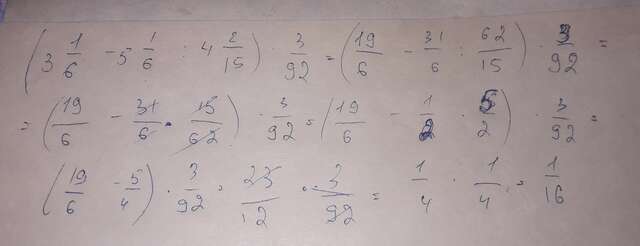 (3 1/6 - 5 1/6 : 4 2/15) · 3/92 = (19/6 - 31/6 : 62/15) · 3/92 =
= (19/6 - 31/6 · 15/62) · 3/92 = (19/6 - 1/2 · 5/2) · 3/92 =
(19/6 - 5/4) · 3/92 = 23/12 · 3/92 = 1/4 · 1/4 = 1/16